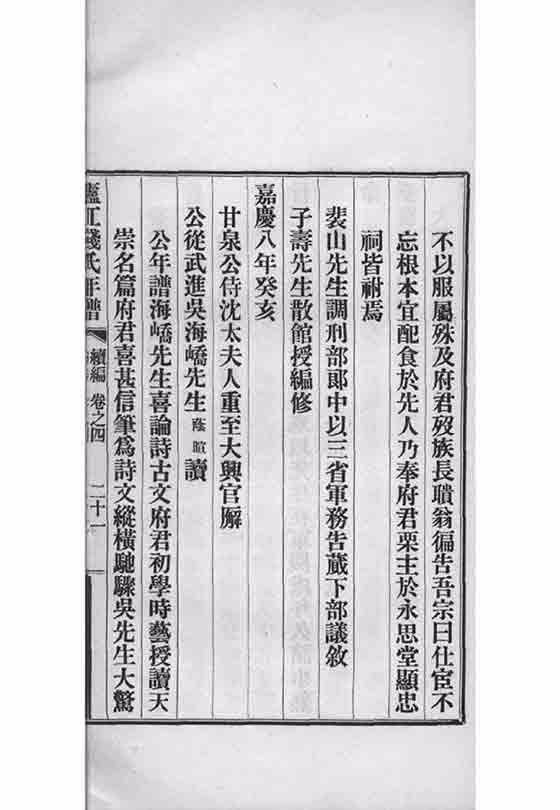 不以服屬殊及府君歿族長聵翁徧告吾宗曰仕宦不
忘根本宜配食於先人乃奉府君栗主於永思堂顯忠
祠皆祔焉
裴山先生調刑部郞中以三省軍務吿蕆下部議敘
子壽先生散館授編修
嘉慶八年癸亥
甘泉公侍沈太夫人重至大興官廨
公從武進吳海嶠先生蔭暄讀
公年譜海嶠先生喜論詩古文府君初學時藝授讀天
崇名篇府君喜甚信筆爲詩文縱橫馳驟吳先生大驚
廬江錢氏年譜 續編 卷之四 二十一